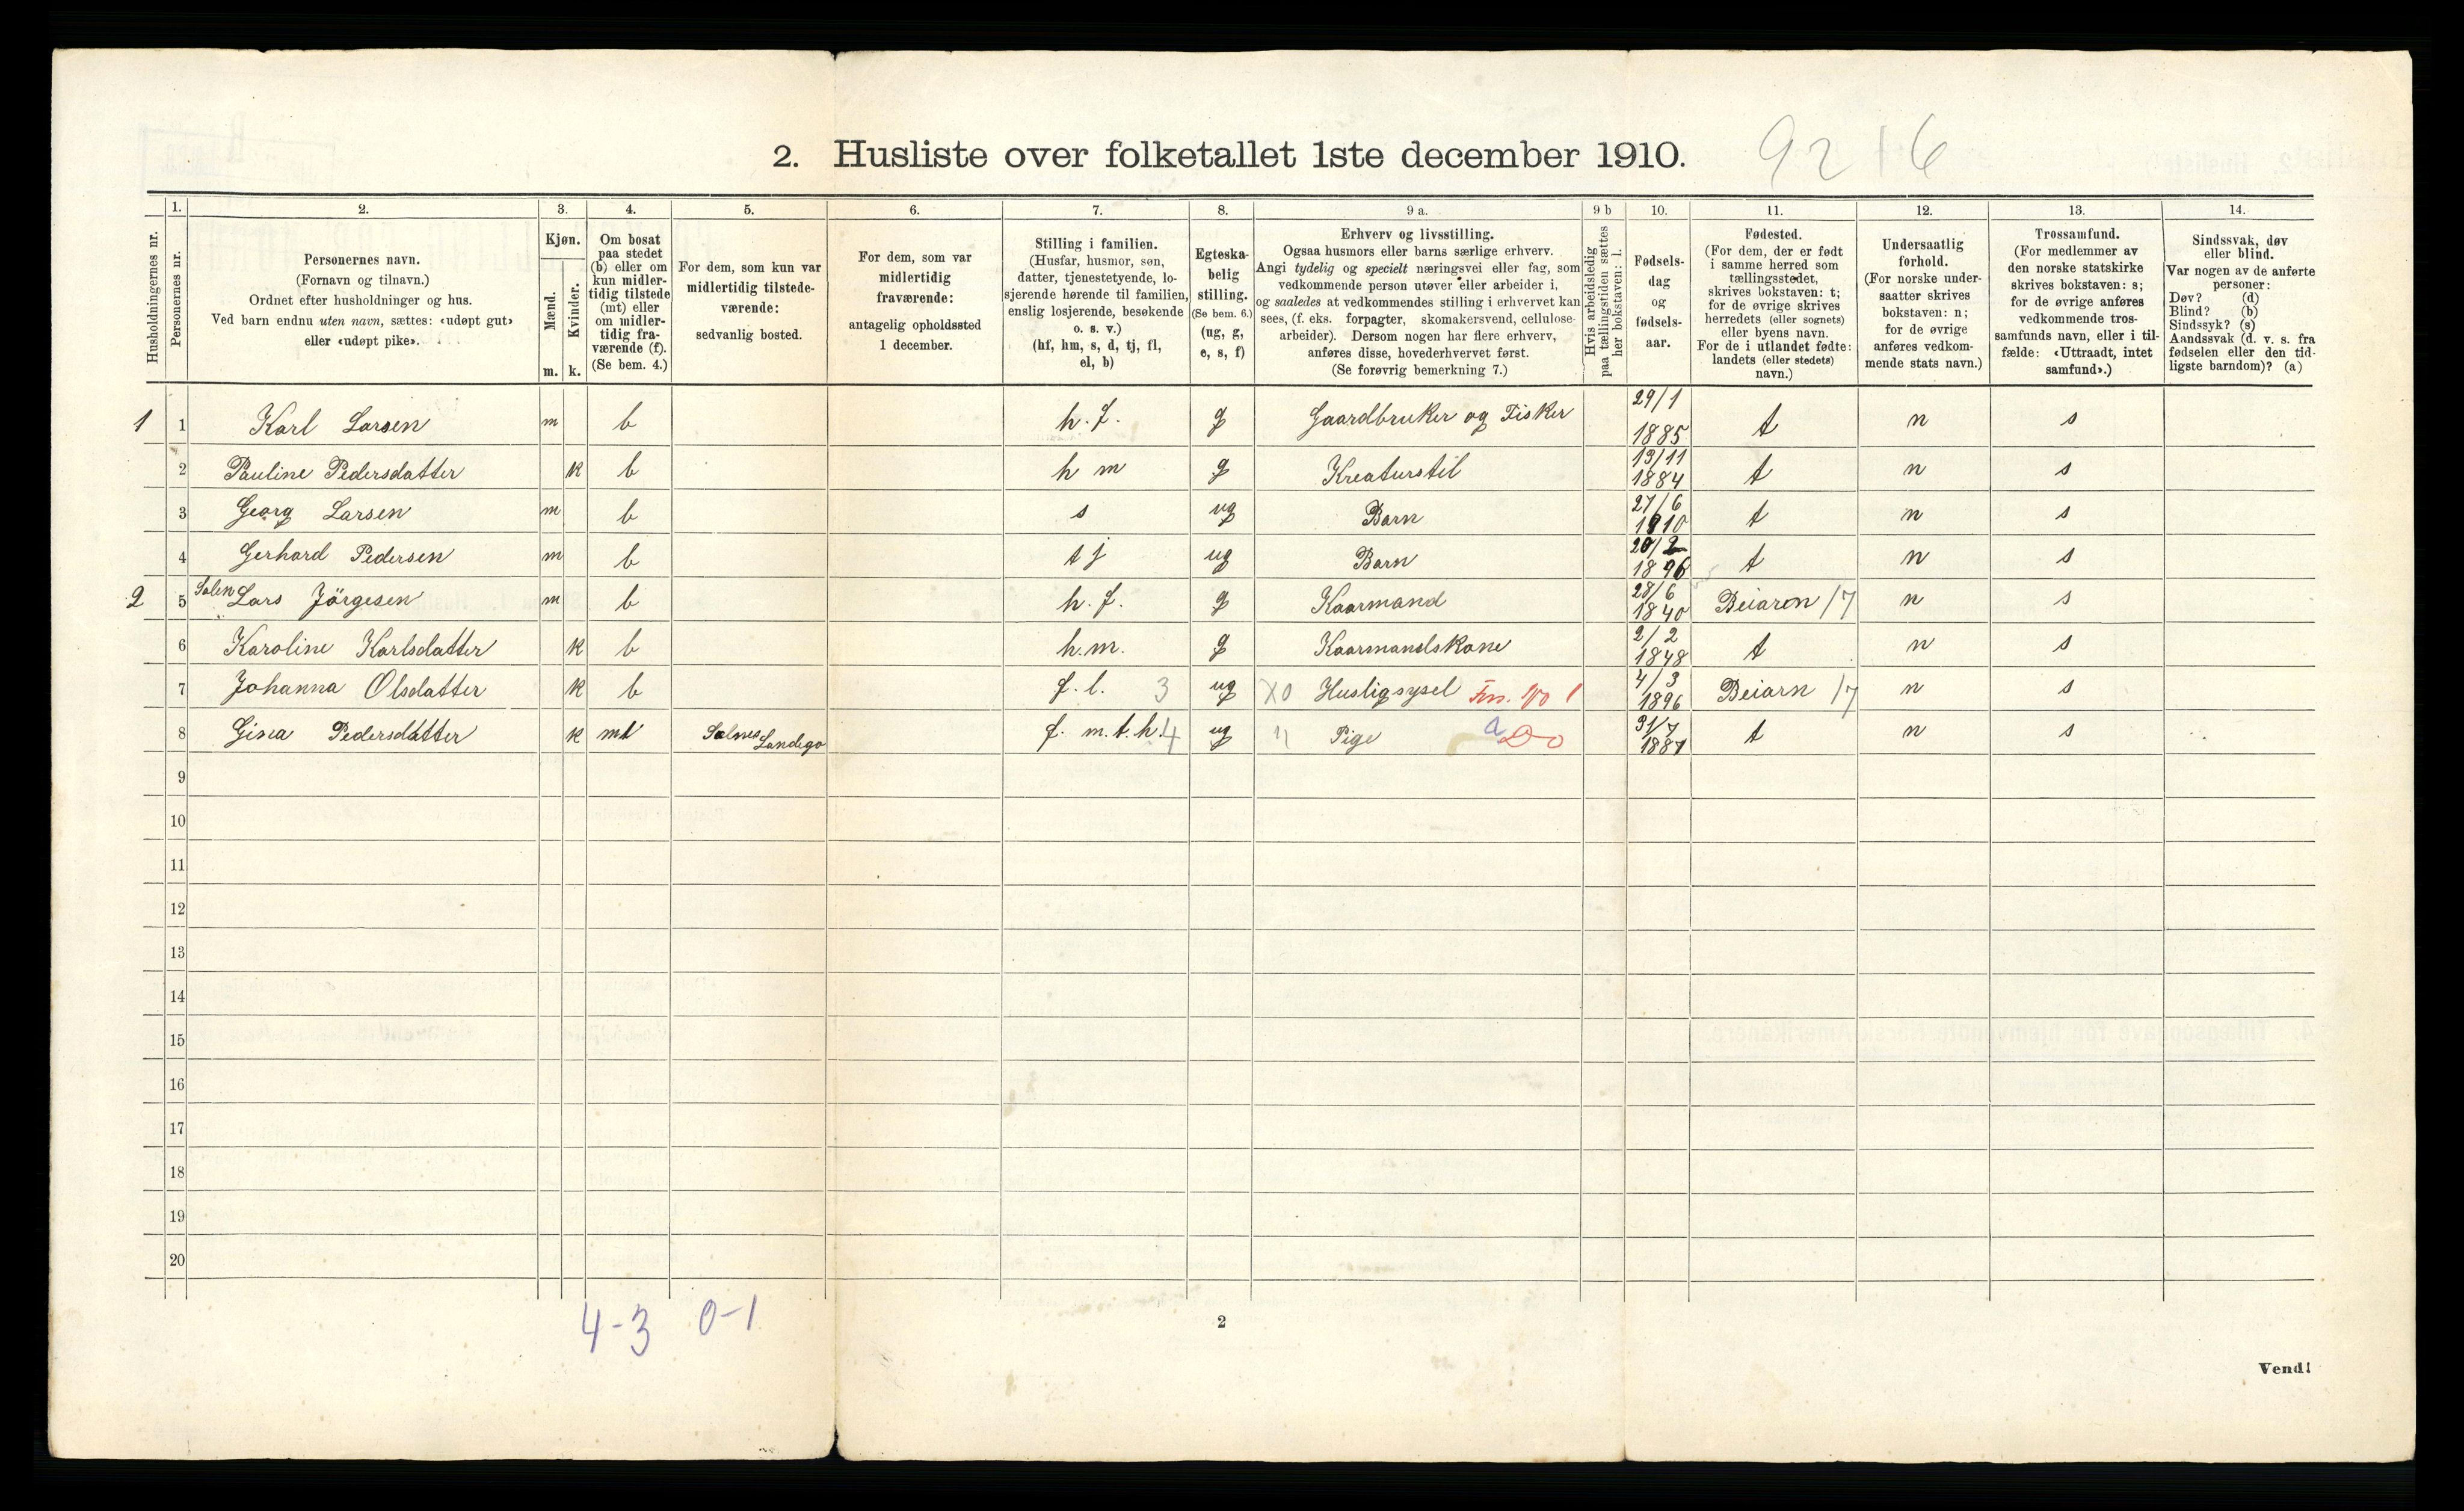 2. Husliste over folketallet 1ste december 1910.
9216
Husholdningernes nr.
1.
Personernes nr.
2.
Personernes navn.
(Fornavn og tilnavn.)
Ordnet efter husholdninger og hus.
Ved barn endnu uten navn, sættes: «udøpt gut»
eller «udøpt pike».
3.
Kjøn.
Mænd.
Kvinder.
m. k.
4.
Om bosat
paa stedet
(b) eller om
kun midler-
tidig tilstede
(mt) eller
om midler-
tidig fra-
værende (f).
(Se bem. 4.)
5.
For dem, som kun var
midlertidig tilstede-
værende:
sedvanlig bosted.
6.
For dem, som var
midlertidig
fraværende:
antagelig opholdssted
1 december.
7.
Stilling i familien.
(Husfar, husmor, søn,
datter, tjenestetyende, lo-
sjerende hørende til familien,
enslig losjerende, besøkende
o. s. v.)
(hf, hm, s, d, tj, fl,
el, b)
8.
Egteska-
belig
stilling.
(Se bem. 6.)
(ug, g,
e, s, f)
9 a.
Erhverv og livsstilling.
Ogsaa husmors eller barns særlige erhverv.
Angi tydelig og specielt næringsvei eller fag, som
vedkommende person utøver eller arbeider i,
og saaledes at vedkommendes stilling i erhvervet kan
sees, (f. eks. forpagter, skomakersvend, cellulose-
arbeider). Dersom nogen har flere erhverv,
anføres disse, hovederhvervet først.
(Se forøvrig bemerkning 7.)
9 b
Hvis arbeidsledig
paa tællingstiden sættes
her bokstaven: l.
10.
Fødsels-
dag
og
fødsels-
aar.
11.
Fødested.
(For dem, der er født
i samme herred som
tællingsstedet,
skrives bokstaven: t;
for de øvrige skrives
herredets (eller sognets)
eller byens navn.
For de i utlandet fødte:
landets (eller stedets)
navn.)
12.
Undersaatlig
forhold.
(For norske under-
saatter skrives
bokstaven: n;
for de øvrige
anføres vedkom-
mende stats navn.)
13.
Trossamfund.
(For medlemmer av
den norske statskirke
skrives bokstaven: s;
for de øvrige anføres
vedkommende tros-
samfunds navn, eller i til-
fælde: «Uttraadt, intet
samfund».)
14.
Sindssvak, døv
eller blind.
Var nogen av de anførte
personer:
Døv? (d)
Blind? (b)
Sindssyk? (s)
Aandssvak (d. v. s. fra
fødselen eller den tid-
ligste barndom)? (a)
1 1 Karl Larsen m b h. f. g Gaardbruker og Fisker 29/1 1885 t n s
2 Pauline Pedersdatter k b h m g Kreaturstil 13/11 1884 t n s
3 Georg Larsen m b s ug Barn 27/6 1910 t n s
4 Gerhard Pedersen m b t j ug Barn 20/2 1896 t n s
2 5 Lars Jörgesen m b h. f. g Kaarmand 28/6 1840 Beiaren /7 n s
6 Karoline Karlsdatter k b h.m. g Kaarmandskone 2/2 1848 t n s
7 Johanna Olsdatter k b f. l. 3 ug X0 Husligsysel 4/3 1896 Beiarn /7 n s
8 Gina Pedersdatter k mt Salnes Landego f. m. t. h. 4 ug " Pige a Do 31/7 1887 t n s
9
10
11
12
13
14
15
16
17
18
19
20
4-3 0-1
2
Vend!